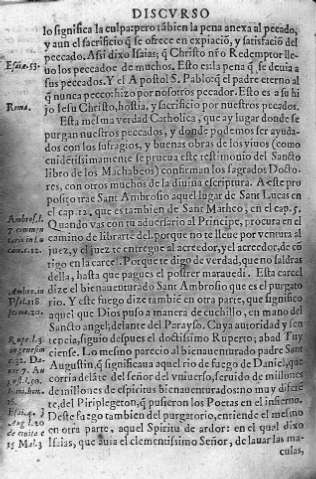 DISCVRSO
lo significa la culpa: pero tãbien la pena anexa al pecado,
y aun el sacrificio q̃ se ofrece en expiaciõ, y satisfaciõ del
pecado. Assi dixo Isaias: q̃ Christo nr̃o Redemptor lle-
Esaiæ. 53.
uo los peccados de muchos. Esto es: la pena q̃ se deuia a
sus peccados. Y el Apostol S. Pablo: q̃ el padre eterno al
q̃ nunca pecco: hizo por nosotros pecador. Esto es a su hi
Roma.
jo Iesu Christo, hostia, y sacrificio por nuestros pecados.
Esta mesma verdad Catholica, que ay lugar donde se
purgan nuestros peccados, y donde podemos ser ayuda-
dos con los sufragios, y buenas obras de los viuos (como
euidentissimamente se prueua este testimonio del Sancto
libro de los Machabeos) confirman los sagrados Docto-
res, con otros muchos de la diuina escriptura. A este pro
posito trae Sant Ambrosio aquel lugar de Sant Lucas en
el cap. 12. que es tambien de Sant Matheo, en el cap. 5.
Ambros. l.
Quando vas con tu aduersario al Principe, procura en el
camino de librarte del: porque no te lleue por ventura al
juez, y el juez te entregue al acreedor, y el acreedor, de cõ
tigo en la carcel. Porque te digo de verdad, que no saldras
della, hasta que pagues el postrer marauedi. Esta carcel
dize el bienauenturado Sant Ambrosio que es el purgato
rio. Y este fuego dize tambiẽ en otra parte, que significo
aquel que Dios puso a manera de cuchillo, en mano del
Sancto angel, delante del Parayso. Cuya autoridad y sen
tencia, siguio despues el doctissimo Ruperto, abad Tuy
ciense. Lo mesmo parecio al bienauenturado padre Sant
Augustin, q̃ significaua aquel rio de fuego de Daniel, que
corria delãte del señor del vniuerso, seruido de millones
de millones de espiritus bienauenturados: no muy difere
te, del Piriplegeton, q̃ pusieron los Poetas en el infierno.
Deste fuego tambien del purgatorio, entiende el mesmo
en otra parte, aquel Spiritu de ardor: en el qual dixo
Isaias, que auia el clementissimo Señor, de lauar las ma
culas,